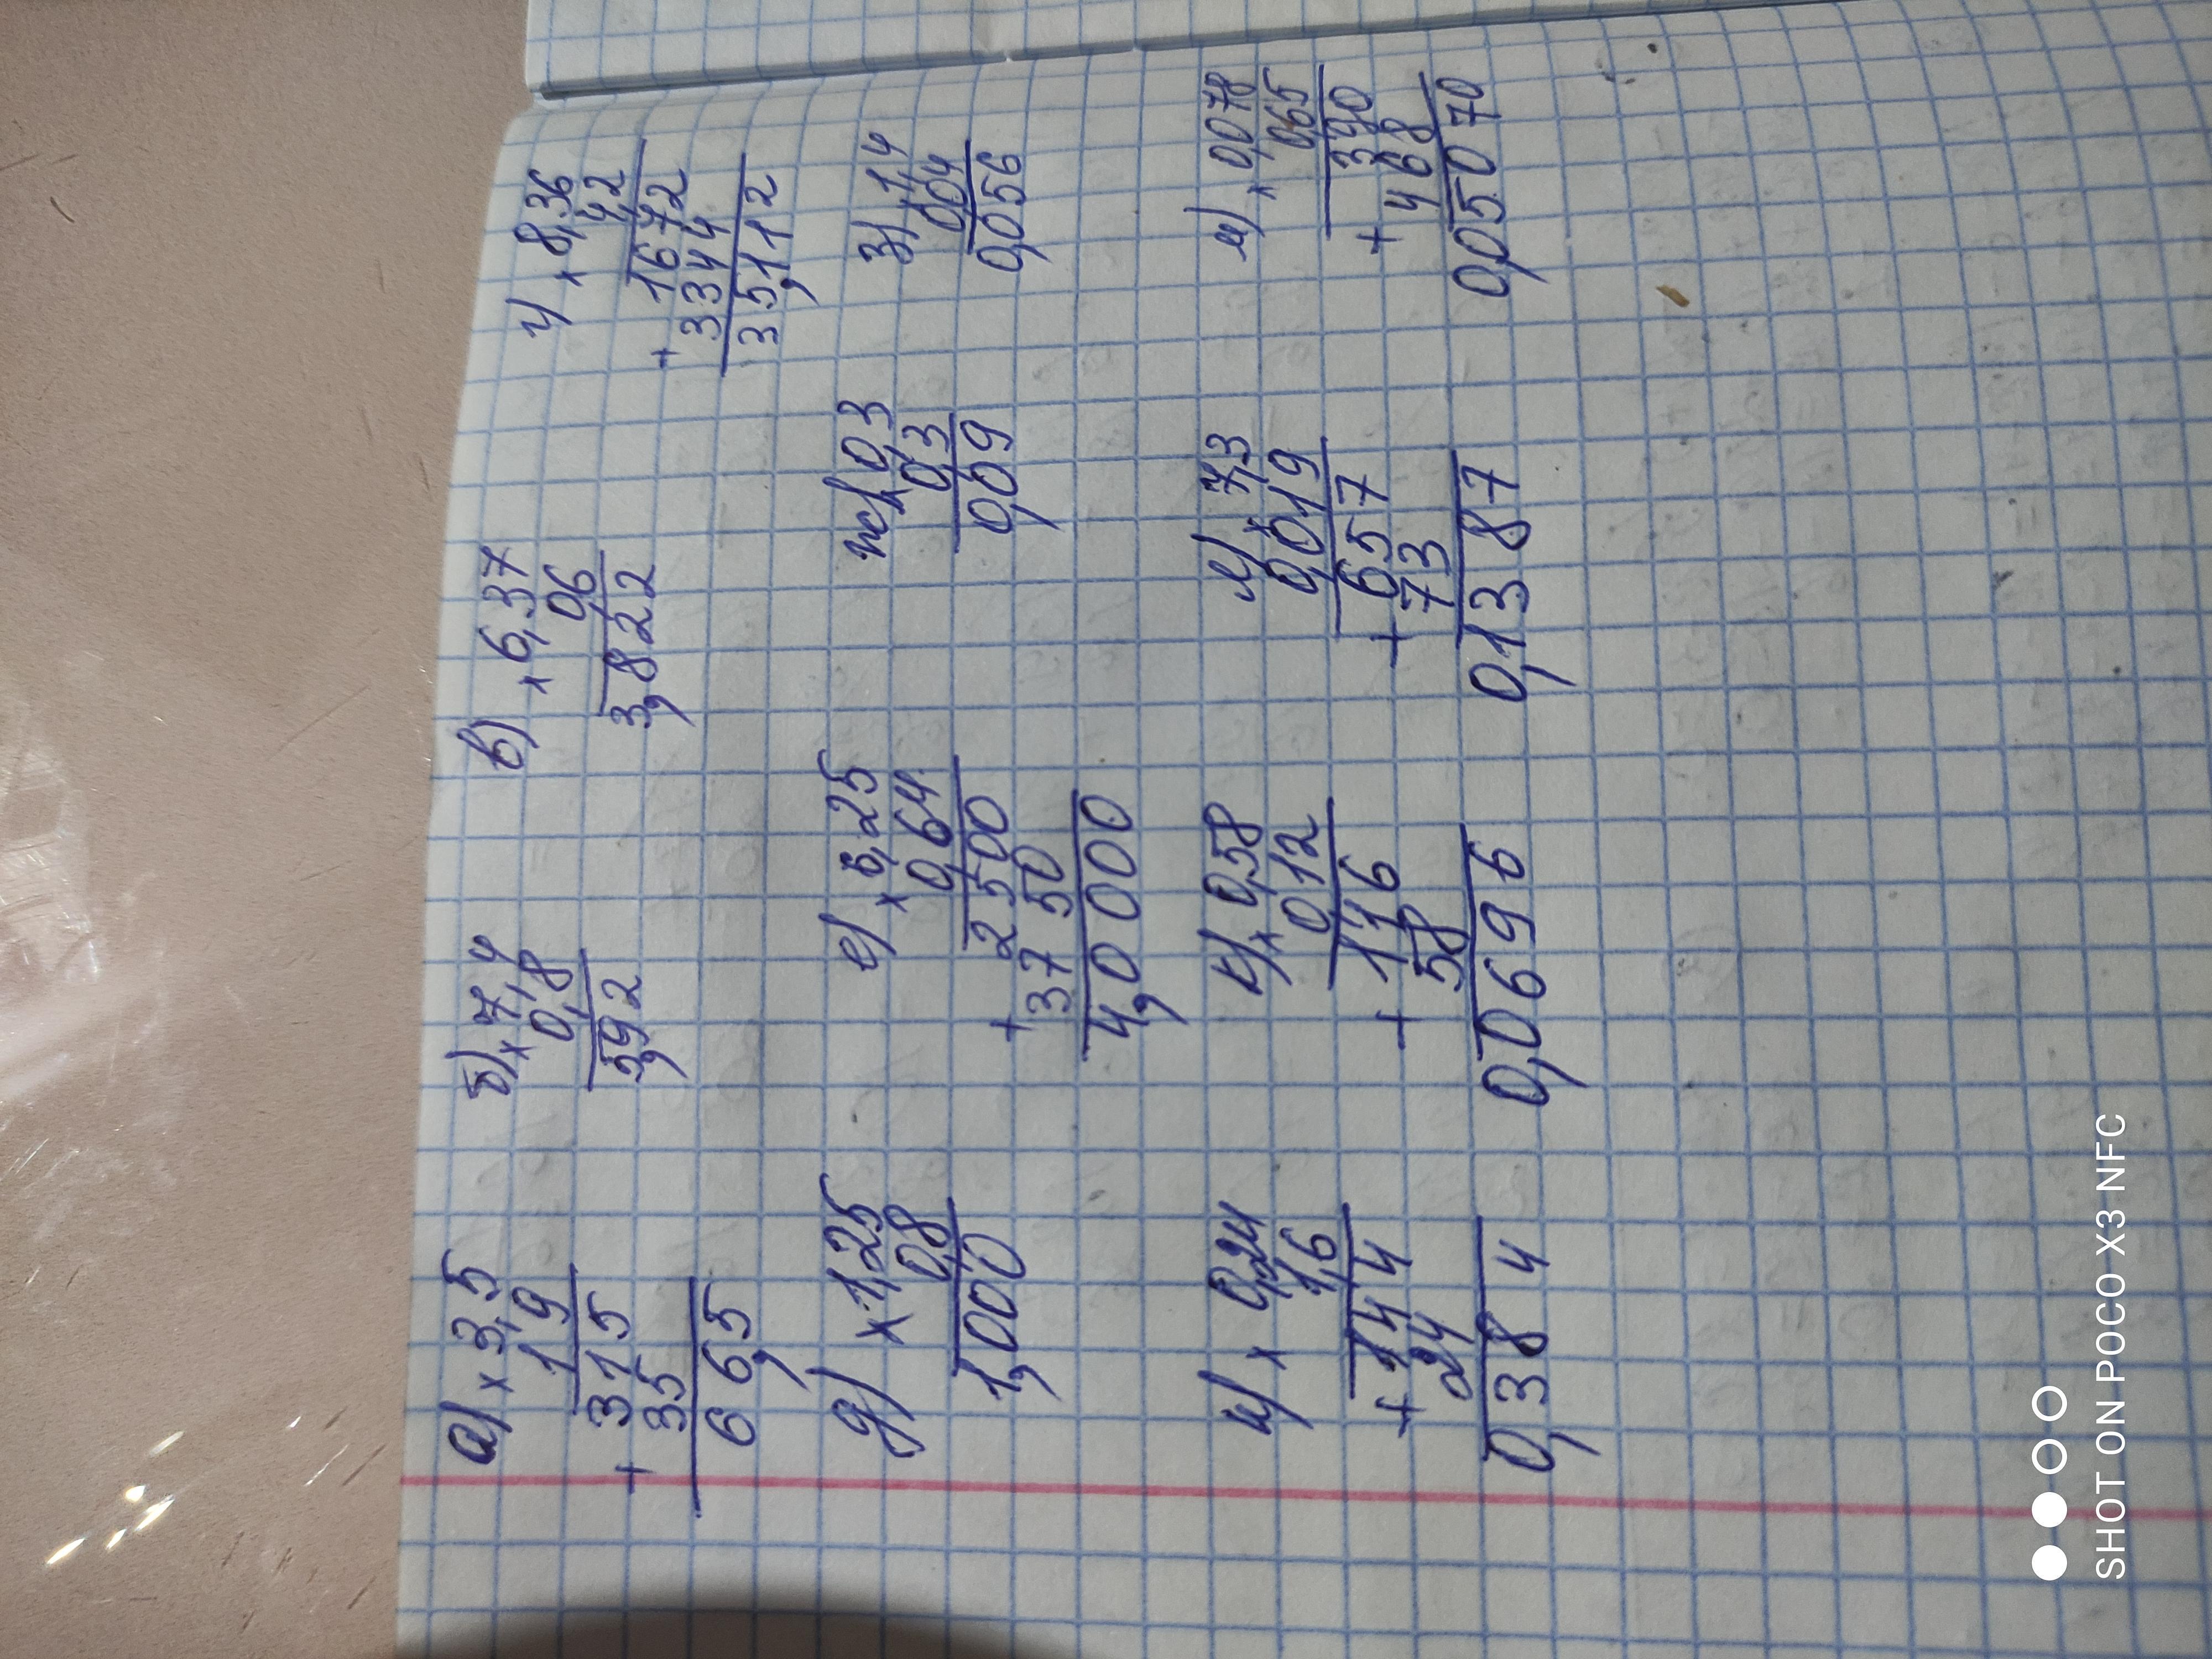 а) × 3,5
19
+ 315
35
66,5
б) × 7,4
0,8
5,92
в) × 6,37
0,6
3,822
г) × 8,36
4,2
+ 1672
3344
35,112
д) × 1,25
0,8
1,000
е) × 6,25
0,64
+ 2500
3750
4,0000
ж) × 0,3
0,3
0,09
з) 1,4
0,04
0,056
и) × 0,24
1,6
+ 144
024
0,384
к) × 0,58
0,12
+ 116
58
0,0696
л) 7,3
× 0,019
+ 657
73
0,1387
м) × 0,078
0,65
390
+ 468
0,05070
SHOT ON POCO X3 NFC